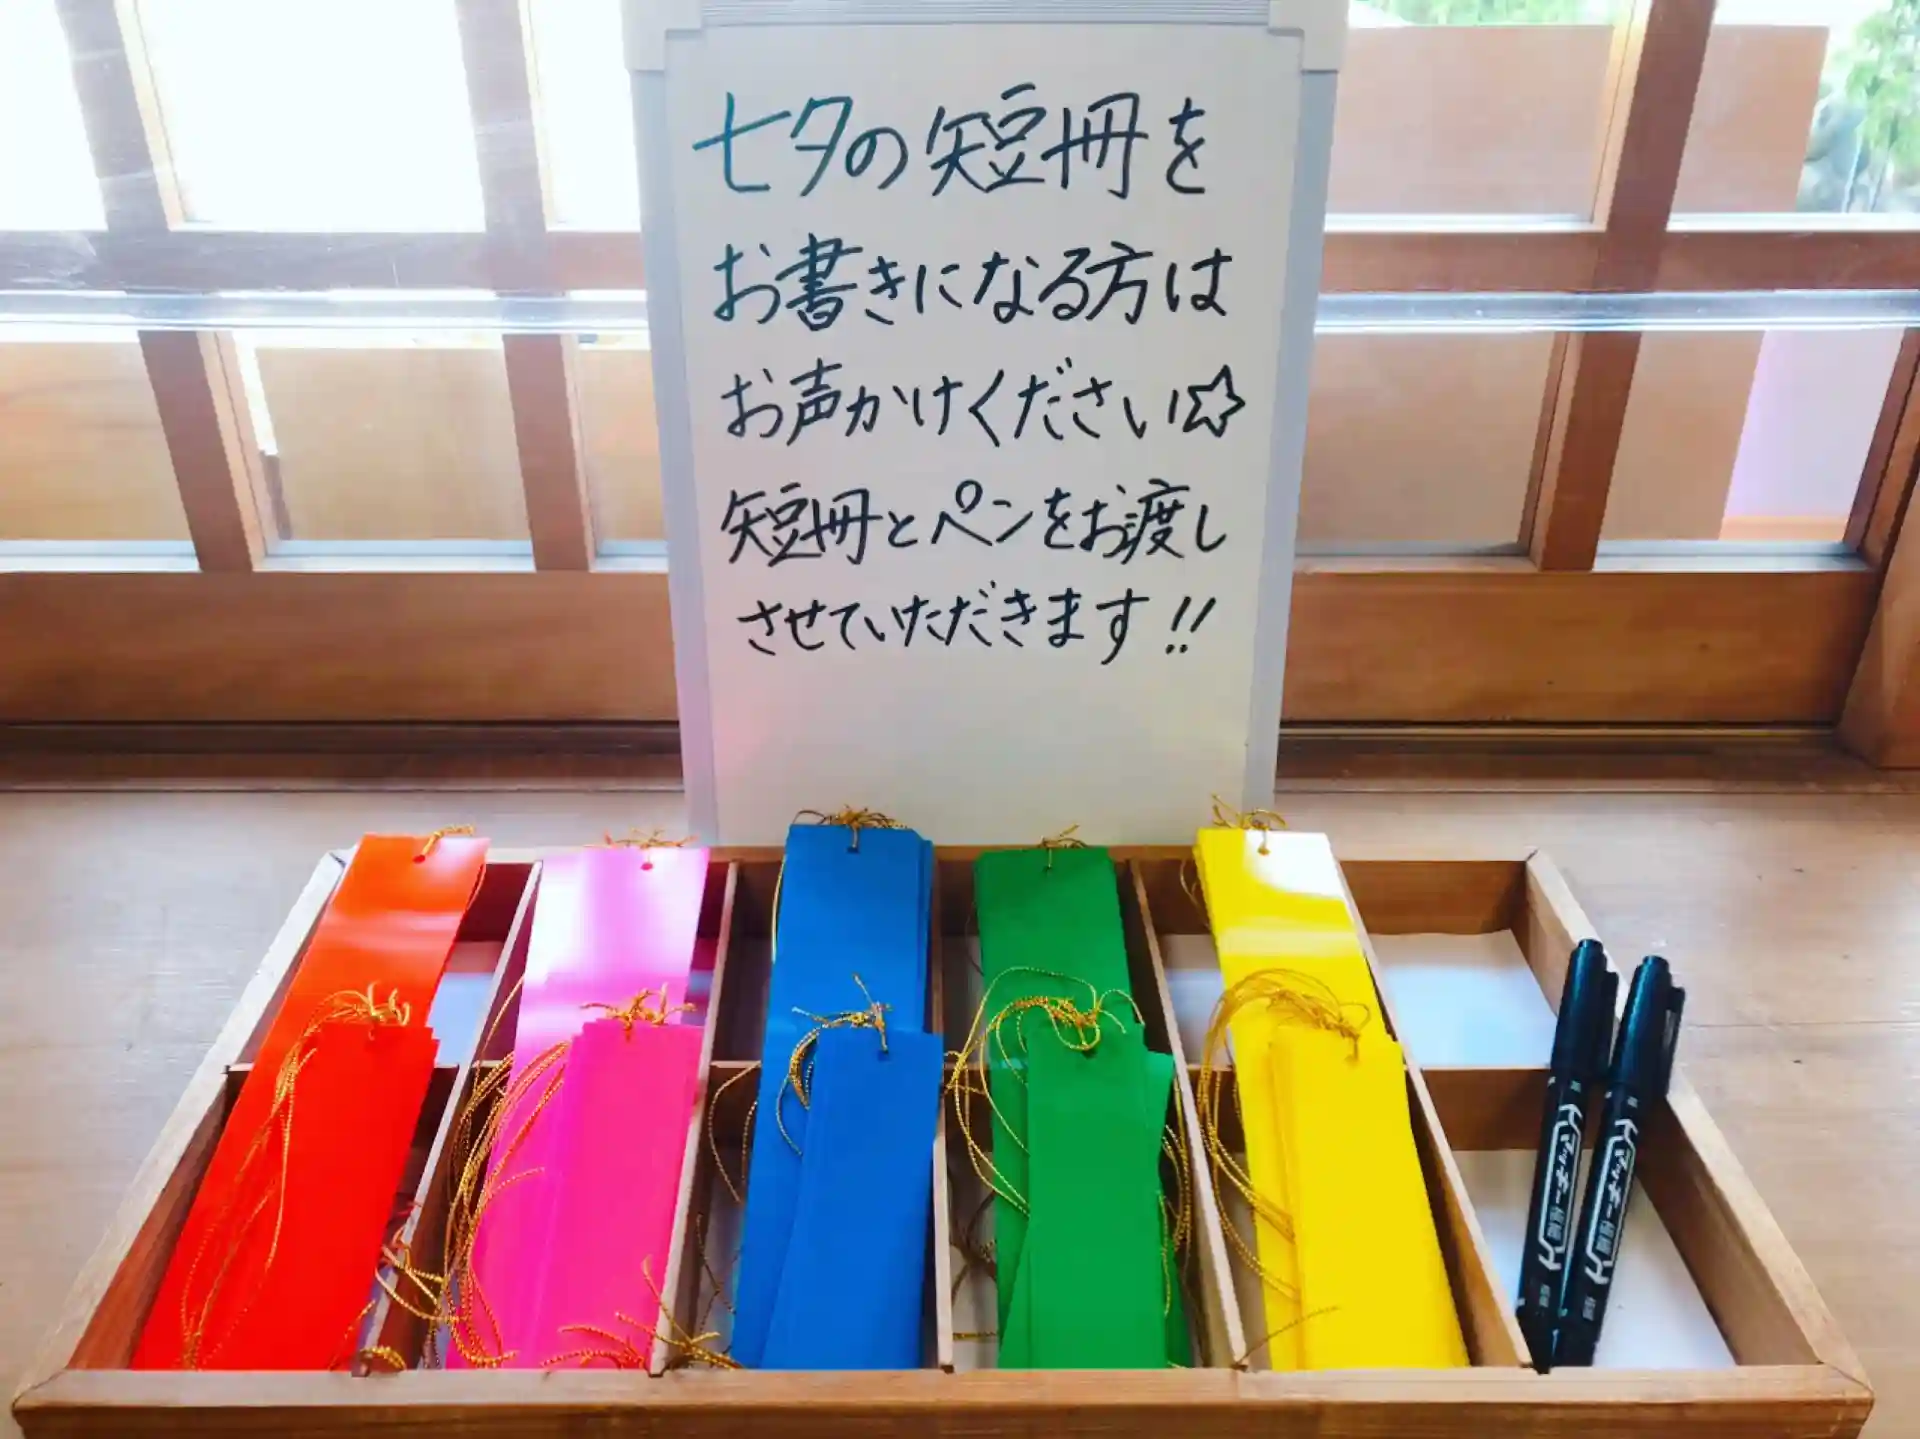 七夕の短冊を
お書きになる方は
お声かけください☆
短冊とペンをお渡し
させていただきます!!
マッキー極細
マッキー極細